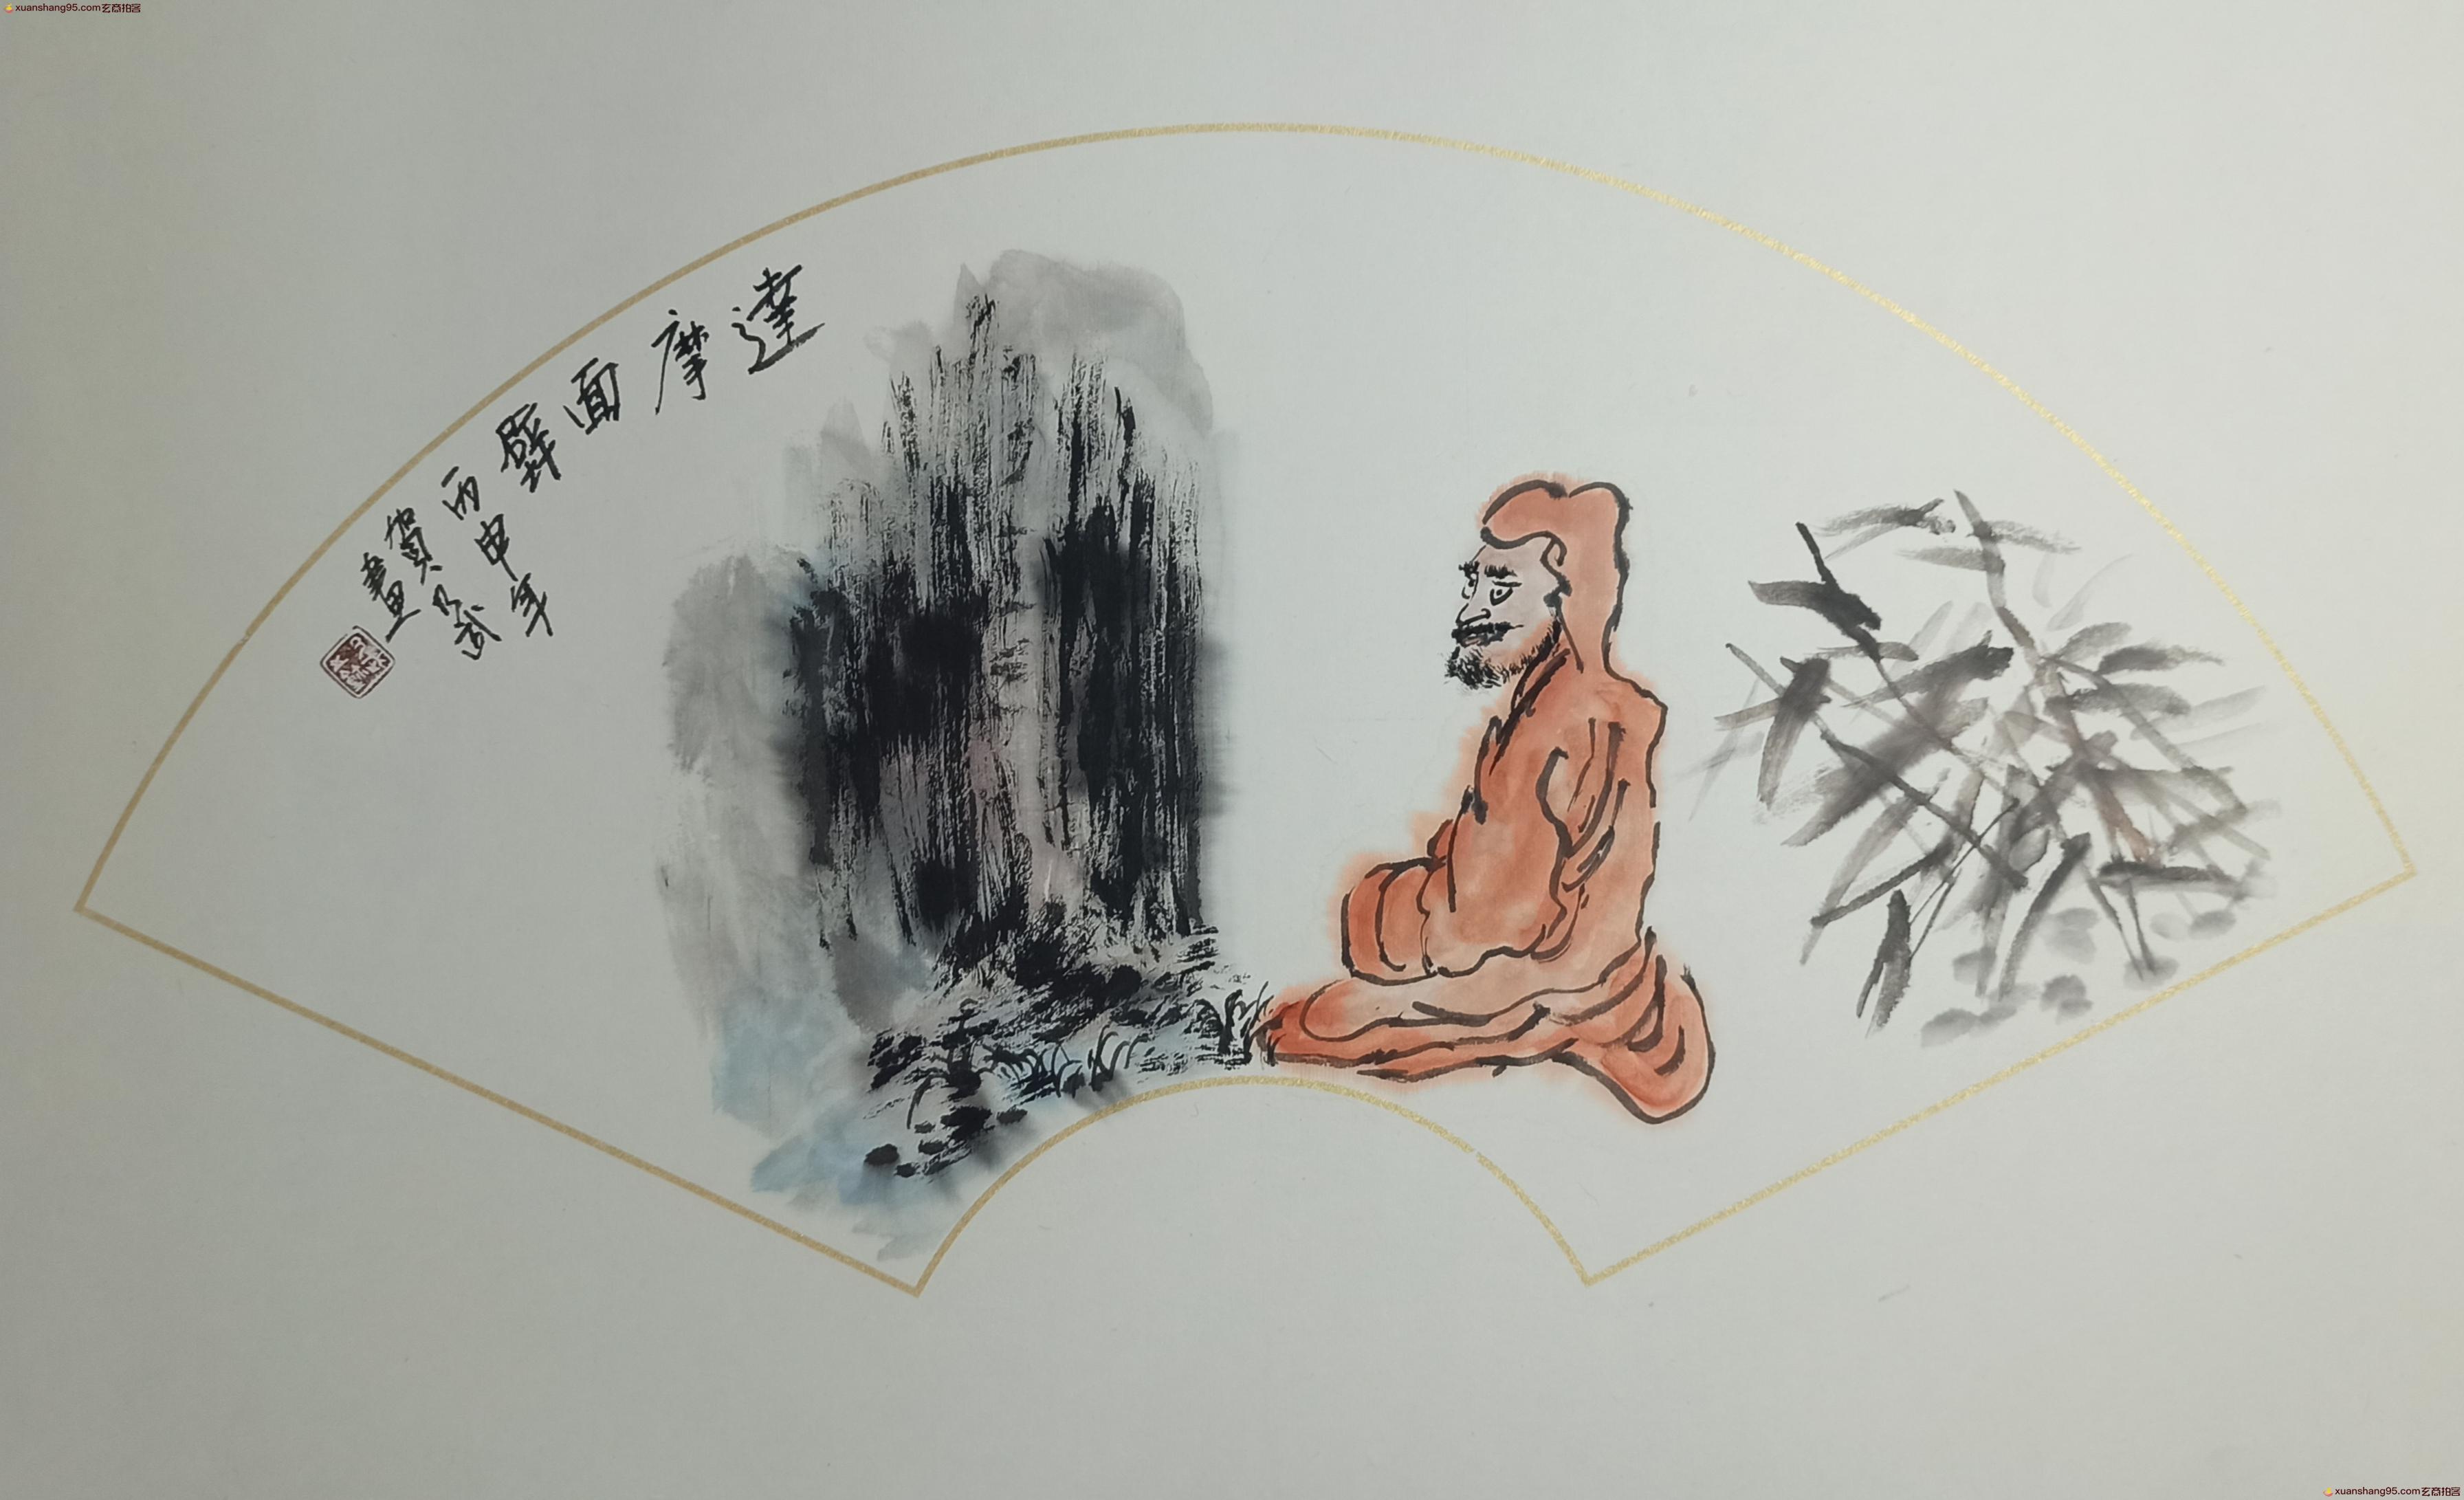 xuanshang95.com玄商拍客
達摩面壁
丙申年
賀乃武
畫
xuanshang95.com玄商拍客